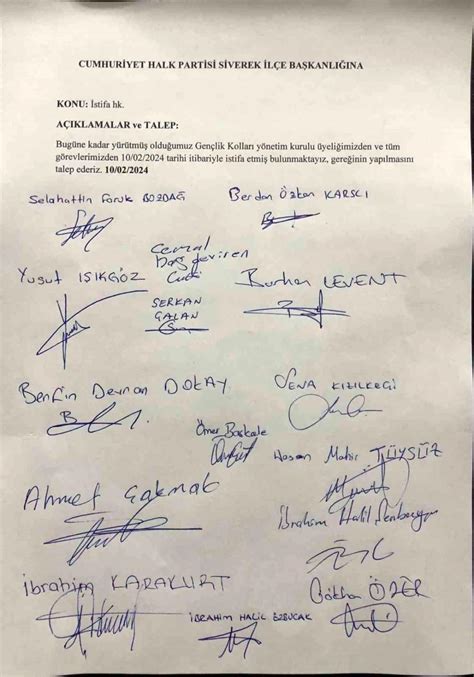 CUMHURİYET HALK PARTİSİ SİVEREK İLÇE BAŞKANLIĞINA
KONU: İstifa hk.
AÇIKLAMALAR ve TALEP:
Bugüne kadar yürütmüş olduğumuz Gençlik Kolları yönetim kurulu üyeliğimizden ve tüm
görevlerimizden 10/02/2024 tarihi itibariyle istifa etmiş bulunmaktayız, gereğinin yapılmasını
talep ederiz. 10/02/2024
Selahattin Faruk BOZDAĞ
Berdan Özkan KARSCI
Yusuf IŞIKGÖZ
Cemal
başgeviren
Burhan LEVENT
SERKAN
GALAN
Berfin Devran DOKAY
Sena KIZILKEGİ
Ömer Baskale
Hasan Mahir TÜYSÜZ
Ahmet Çakmak
İbrahim Halil
İbrahim KARAKURT
Gökhan ÖZER
İBRAHİM HALİL ÖZBUCAK